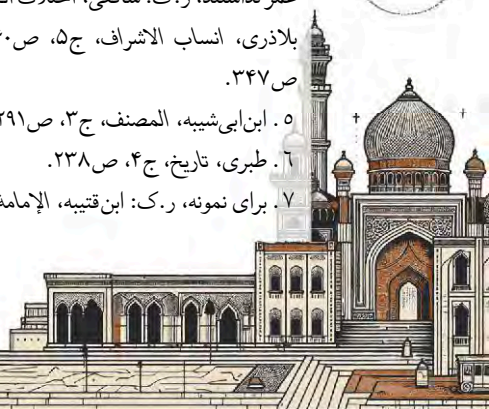 بلاذری، انساب الاشراف، ج۵، ص
ص۳۴۷.
۵. ابن‌ابی‌شیبه، المصنف، ج۳، ص۲۹۱
۶. طبری، تاریخ، ج۴، ص۲۳۸.
۷. برای نمونه، ر.ک: ابن‌قتیبه، الإمامة